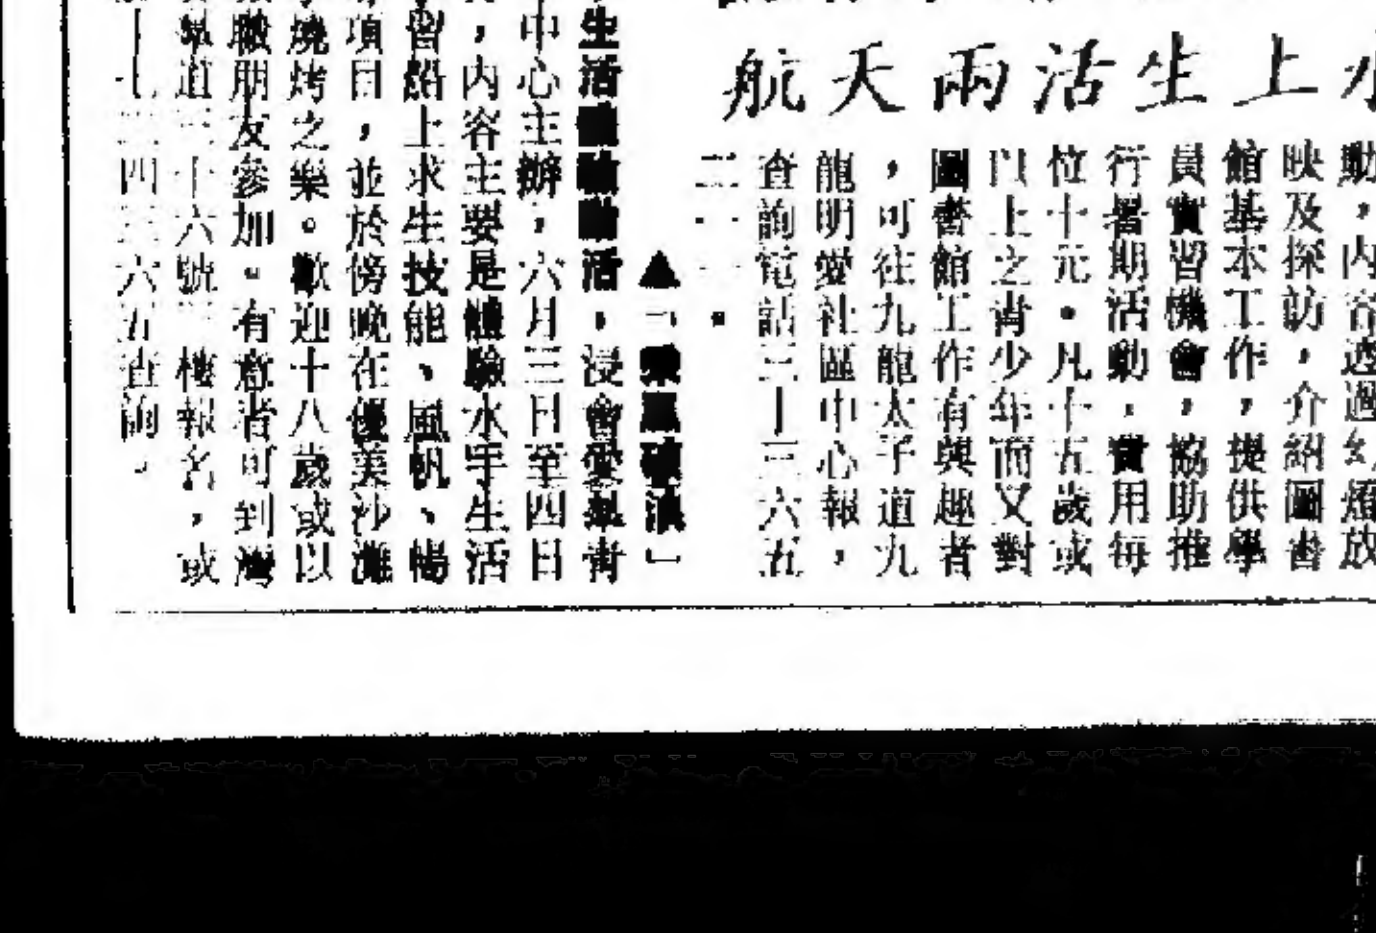 航天兩活生上水
動，內容透過幻燈放
映及探訪，介紹圖書
館基本工作，提供學
員實習機會，協助推
行暑期活動，費用每
位十元。凡十五歲或
以上之青少年而又對
圖書館工作有興趣者
，可往九龍太子道九
龍明愛社區中心報，
查詢電話三—三六五
▲「乘風破浪」
生活體驗動活，浸會愛羣青
中心主辦，六月三日至四日
，內容主要是體驗水手生活
習船上求生技能、風帆、暢
項目，並於傍晚在優美沙灘
燒烤之樂。歡迎十八歲或以
職朋友參加。有意者可到灣
道三十六號三樓報名，或
四三六五查詢。